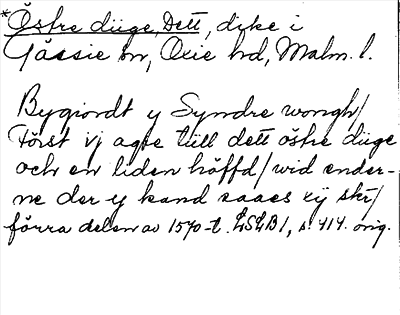 *Östre diige, Dett, dike i
Gässie sn, Oxie hd, Malm. l.
Bygiordt y Syndre wongh/
Först vj agre tiill dett östre diige
och en liden höffd/wid ender-
ne der y kand saaes xij skr/
förra delen av 1570-t. LSLB1, s. 414. orig.